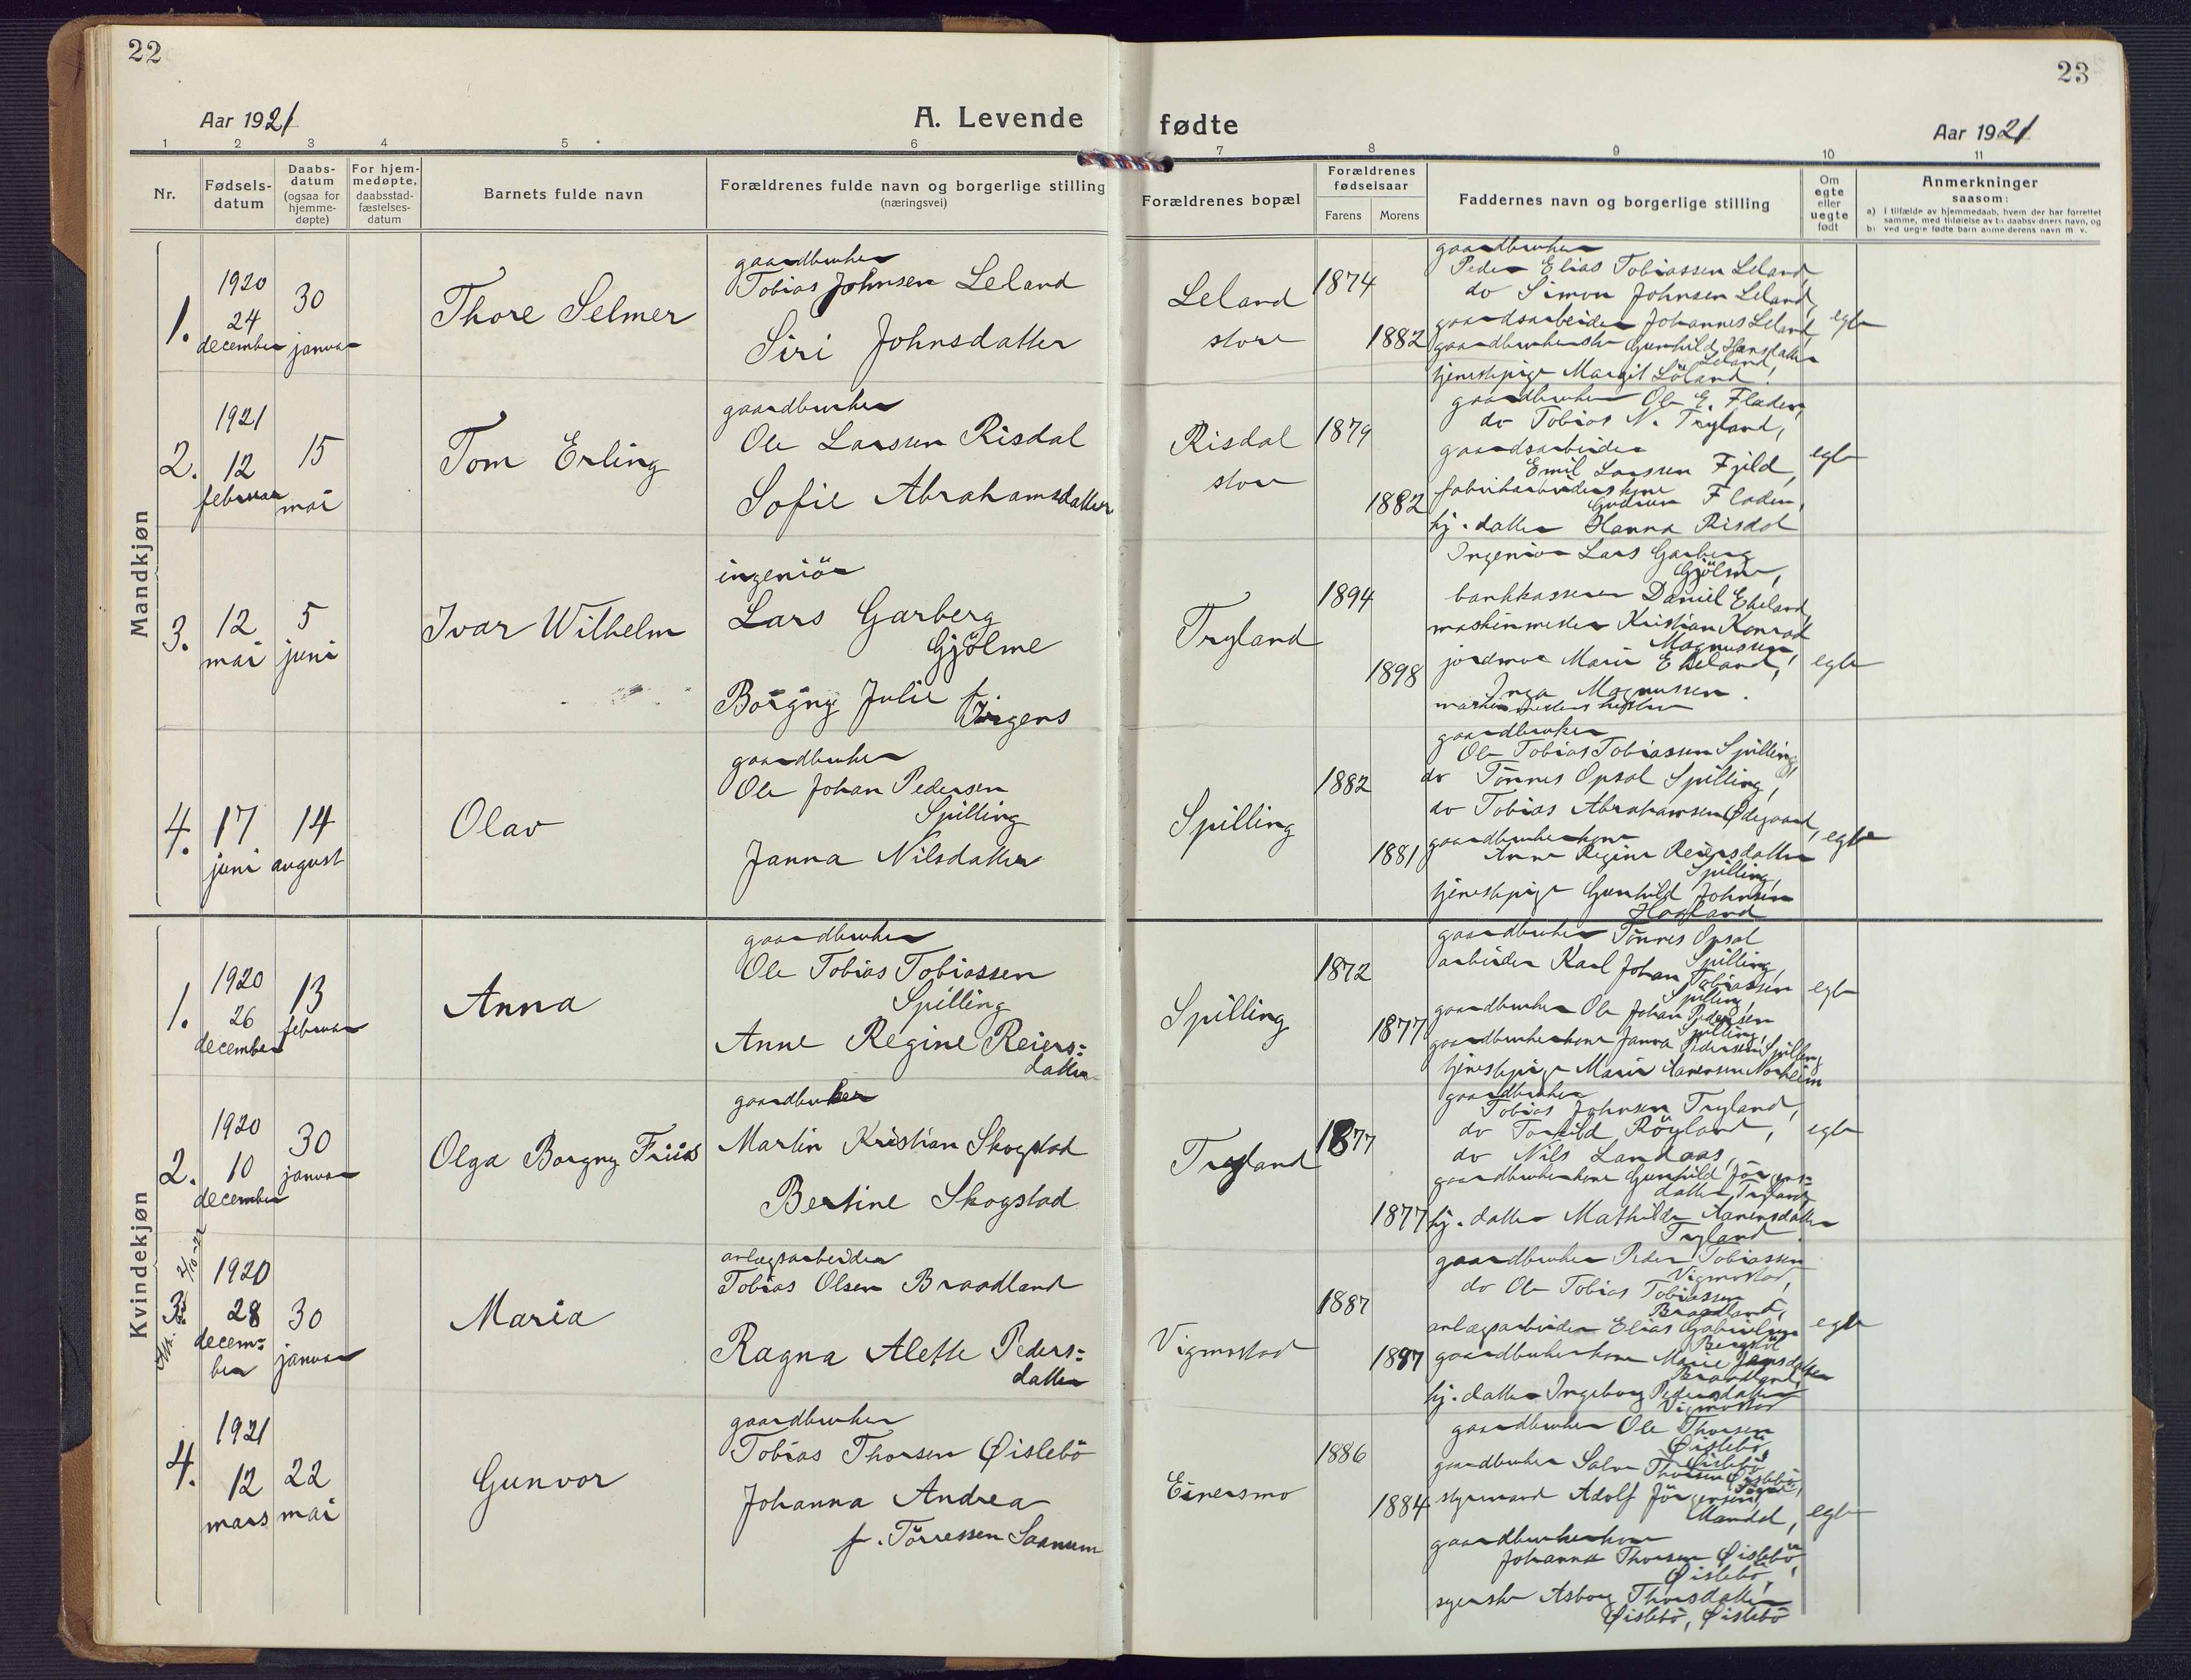 22
23
Aar 1921
A. Levende fødte
Aar 1921
1 2 3 4 5 6 7 8 9 10 11
Nr.
Fødsels-
datum
Daabs-
datum
(ogsaa for
hjemme-
døpte)
For hjem-
medøpte,
daabsstad-
fæstelses-
datum
Barnets fulde navn
Forældrenes fulde navn og borgerlige stilling
(næringsvei)
Forældrenes bopæl
Forældrenes
fødselsaar
Farens
Morens
Faddernes navn og borgerlige stilling
Om
egte
eller
uegte
født
Anmerkninger
saasom:
a) I tilfælde av hjemmedaab, hvem der har forrettet
samme, med tilføielse av to daabsvidners navn, og
b) ved uegte fødte barn anmelderens navn m. v.
Mandkjøn
1.
1920
24
december
30
januar
Thore Selmer
gaardbruker
Tobias Johnsen Leland
Siri Johnsdatter
Leland
store
1874
1882
gaardbruker
Peder Elias Tobiassen Leland,
do Simon Johnsen Leland,
gaardsarbeider Johannes Leland,
gaardbrukerske Gunhild Hansdatter
Leland,
tjenestepige Margit Löland.
egte
2.
1921
12
februar
15
mai
Tom Erling
gaardbruker
Ole Larssen Risdal
Sofie Abrahamsdatter
Risdal
store
1879
1882
gaardbruker Ole E. Fladen,
do Tobias N. Tryland,
gaardsarbeider
Emil Larssen Fjild,
fabrikarbeiderskone
Gudrun Fladen,
hj. datter Hanna Risdal
egte
3.
12
mai
5
juni
Ivar Wilhelm
ingeniör
Lars Garberg
Gjölme
Borgny Julie f.
Jürgens
Tryland
1894
1898
Ingeniør Lars Garberg
Gjölme,
bankkasserer Daniel Ekeland,
maskinmester Kristian Konrad
Magnussen,
jordmor Marie Ekeland,
Inga Magnussen.
maskinmesters hustru
egte
4.
17
juni
14
august
Olav
gaardbruker
Ole Johan Pedersen
Spilling
Janna Nilsdatter
Spilling
1882
1881
gaardbruker
Ole Tobias Tobiassen Spilling,
do Tönnes Opsal Spilling,
do Tobias Abrahamsen Ødegaard,
gaardbrukerkone
Anne Regine Reiersdatter
Spilling,
tjenestepige Gunhild Johnsen
Hogland
egte
Kvindekjøn
1.
1920
26
december
13
februar
Anna
gaardbruker
Ole Tobias Tobiassen
Spilling
Anne Regine Reiers=
datter
Spilling
1872
1877
gaardbruker Tönnes Opsal
Spilling,
arbeider Karl Johan Tobiassen
Spilling,
gaardbruker Ole Johan Pedersen
Spilling,
gaardbrukerkone Janna Pedersen Spilling
tjenestepige Marie Aanensen Norheim
egte
2.
1920
10
december
30
januar
Olga Borgny Friis
gaardbruker
Martin Kristian Skogstad
Bertine Skogstad
Tryland
1877
1877
gaardbruker
Tobias Johnsen Tryland,
do Torkild Röyland,
do Nils Landaas,
gaardbrukerkone Gunhild Jörgens=
datter Tryland,
hj. datter Mathilde Aanensdatter
Tryland
egte
3.
1920
28
decem=
ber
30
januar
Maria
anlægsarbeider
Tobias Olsen Braadland
Ragna Alette Peders=
datter
Vigmostad
1887
1897
gaardbruker Peder Tobiassen
Vigmostad,
do Ole Tobias Tobiassen
Braadland,
anlægsarbeider Elias Gabrielsen
gaardbrukerkone Marie Jansdatter
Braadland,
hj. datter Ingeborg Pedersdatter
Vigmostad
egte
4.
1921
12
mars
22
mai
Gunvor
gaardbruker
Tobias Thorsen Øislebö
Johanna Andrea
f. Törressen Saanum
Einersmo
1886
1884
gaardbruker Ole Thorsen
Øislebö,
gaardbruker Salve Thorsen Øislebö,
styrmand Adolf Jörgensen,
Mandal,
gaardbrukerkone
Johanna Thorsen Øislebö
Øislebö,
syerske Asborg Thorsdatter
Øislebö, Øislebö
egte